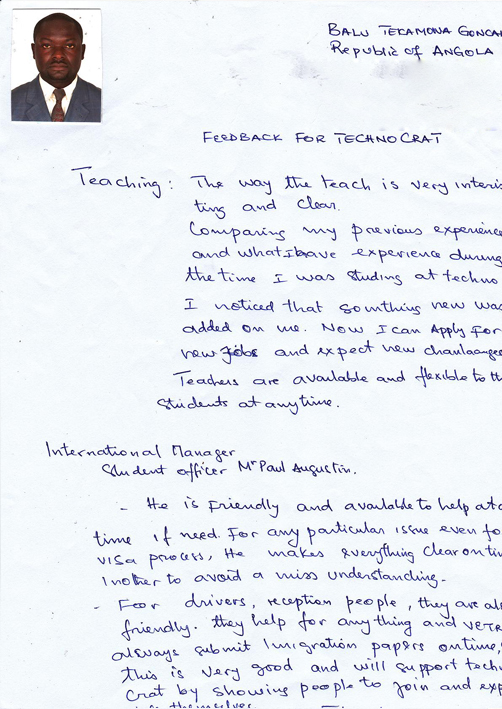 BALU TEKAMONA GONCA
Republic of ANGOLA
FEEDBACK FOR TECHNOCRAT
Teaching: The way the teach is very interis
ting and clear.
Comparing my previous experience
and what I have experience during
the time I was studing at techno
I noticed that somthing new was
added on me. Now I can Apply For
new Jobs and expect new chanlaanges
Teachers are available and flexible to th
students at anytime.
International Manager
Student officer Mr Paul Augustin.
- He is Friendly and available to help at a
time if need. For any particular issue even fo
visa process, He makes everything clear on tim
Inother to avoid a miss understanding.
- Foor drivers, reception people, they are als
friendly. they help for anything and
always submit Imigration papers on time,
this is very good and will support techn
crat by showing people to join and exp
themselves.